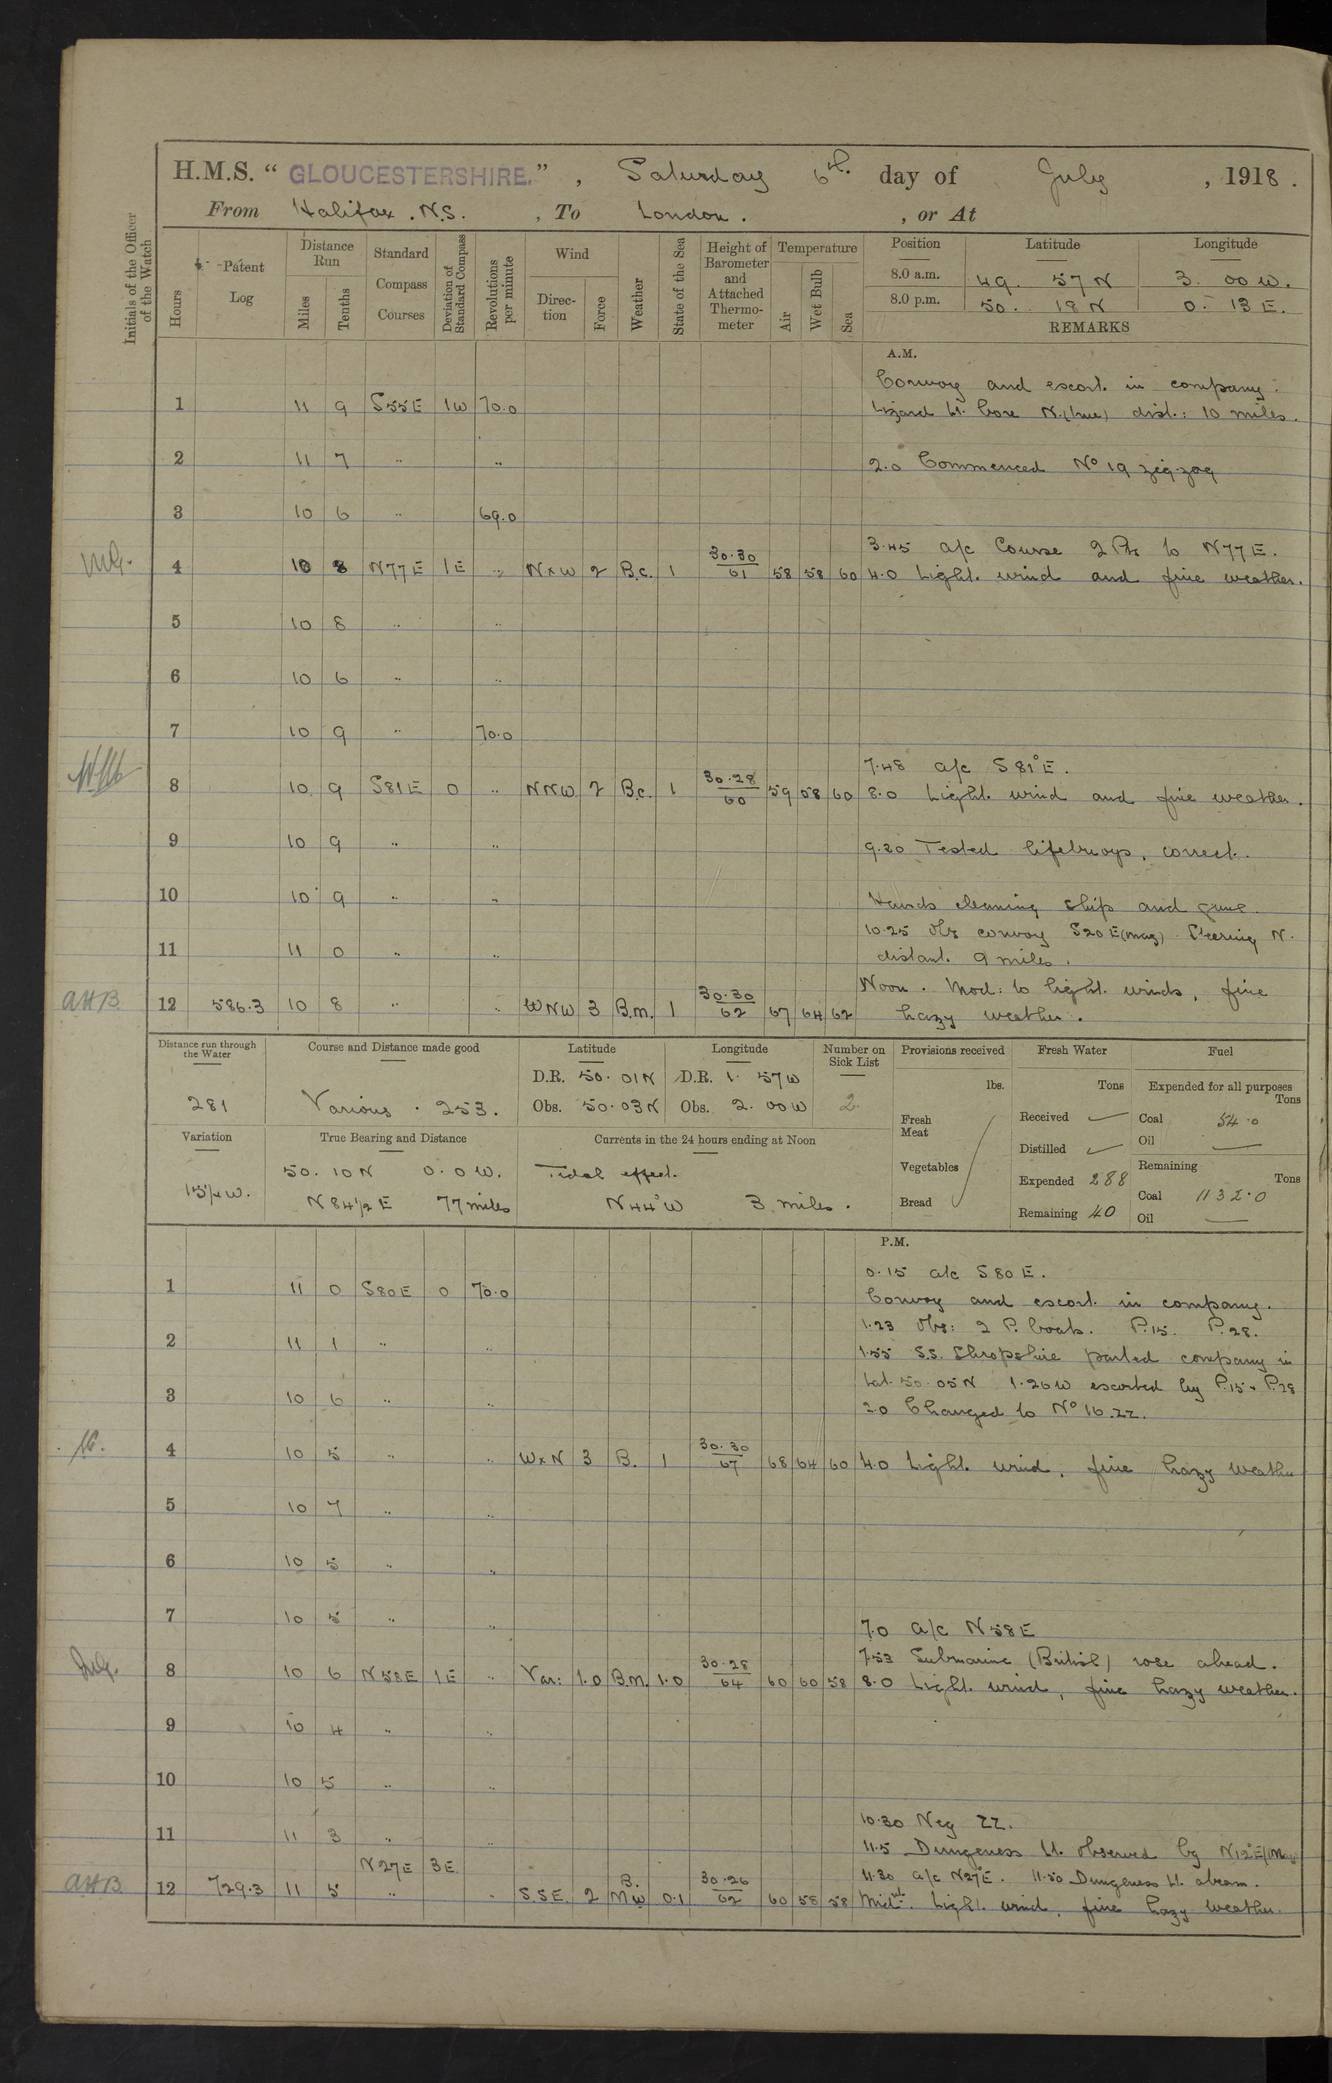 H.M.S. " GLOUCESTERSHIRE. " , Saturday 6th. day of July , 1918 .
From Halifax . N.S. , To London . , or At
Initials of the Officer of the Watch
Hours
Patent Log
Distance Run
Miles
Tenths
Standard Compass Courses
Deviation of Standard Compass
Revolutions per minute
Wind
Direction
Force
Weather
State of the Sea
Height of Barometer and Attached Thermometer
Temperature
Air
Wet Bulb
Sea
Position Latitude Longitude
8.0 a.m. 49. 57 N 3. 00 W.
8.0 p.m. 50. 18 N 0. 13 E.
REMARKS
A.M.
Convoy and escort. in company.
1 11 9 S55E 1W 70.0 Lizard Lt. bore N.(true) dist.: 10 miles.
2 11 7 " " 2.0 Commenced No 19 zig-zag
3 10 6 " 69.0
3.45 a/c Course 2 Pts to N77E.
4 10 8 N77E 1E " NxW 2 B.c. 1 30.30/61 58 58 60 4.0 Light. wind and fine weather.
5 10 8 " "
6 10 6 " "
7 10 9 " 70.0
7.48 a/c S81°E.
8 10 9 S81E 0 " NNW 2 B.c. 1 30.28/60 59 58 60 8.0 Light. wind and fine weather.
9 10 9 " " 9.20 Tested lifebuoys, correct.
10 10 9 " " Hands cleaning ship and guns.
10.25 Obs convoy S20E(mag) Steering N.
11 11 0 " " distant. 9 miles.
AHB. Noon. Mod: to light. winds, fine
12 586.3 10 8 " " WNW 3 B.m. 1 30.30/62 67 64 62 hazy weather.
Distance run through the Water
281
Course and Distance made good
Various . 253.
Latitude
D.R. 50. 01N
Obs. 50.03N
Longitude
D.R. 1. 57W
Obs. 2. 00W
Number on Sick List
2
Provisions received
lbs.
Fresh Meat
Vegetables
Bread
Fresh Water
Tons
Received
Distilled
Expended 288
Remaining 40
Fuel
Expended for all purposes
Tons
Coal 54.0
Oil
Remaining
Tons
Coal 1132.0
Oil
Variation
15¼W.
True Bearing and Distance
50. 10N 0. 0 W.
N 84½ E 77 miles
Currents in the 24 hours ending at Noon
Tidal effect.
N44°W 3 miles.
P.M.
0.15 a/c S80E.
1 11 0 S80E 0 70.0 Convoy and escort. in company.
1.23 Obs: 2 P. boats. P.15. P.28.
2 11 1 " " 1.55 S.S. Shropshire parted company in
Lat. 50.05N 1.26W escorted by P.15 + P.28
3 10 6 " " 2.0 Changed to No 16.ZZ.
4 10 5 " " WxN 3 B. 1 30.30/67 68 64 60 4.0 Light. wind, fine hazy weather
5 10 7 " "
6 10 5 " "
7 10 5 " " 7.0 a/c N58E
7.53 Submarine (British) rose ahead.
8 10 6 N58E 1E " Var: 1.0 B.m. 1.0 30.28/64 60 60 58 8.0 Light. wind, fine hazy weather.
9 10 4 " "
10 10 5 " "
10.30 Neg ZZ.
11 11 3 " " 11.5 Dungeness Lt. observed bg N12°E(Mag)
N27E 3E 11.30 a/c N27°E. 11.50 Dungeness Lt. abeam.
AHB. 12 729.3 11 5 " " SSE. 2 B. Mw 0.1 30.26/62 60 58 58 Midnt. Light. wind, fine hazy weather.